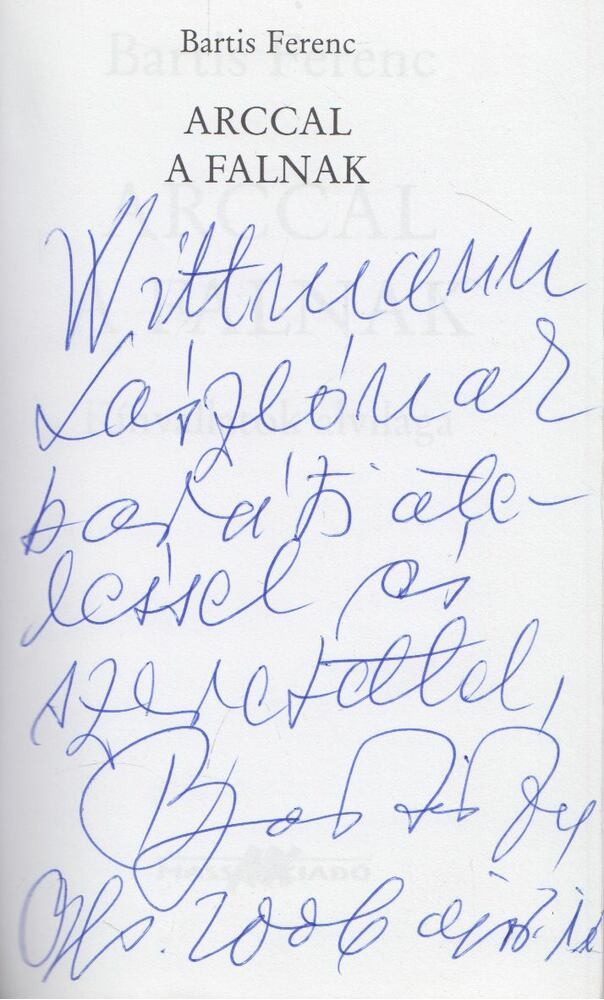 Bartis Ferenc
ARCCAL
A FALNAK
Wittmann
Lászlónak
baráti öle-
léssel és
szeretettel,
Bartis Fe
2006